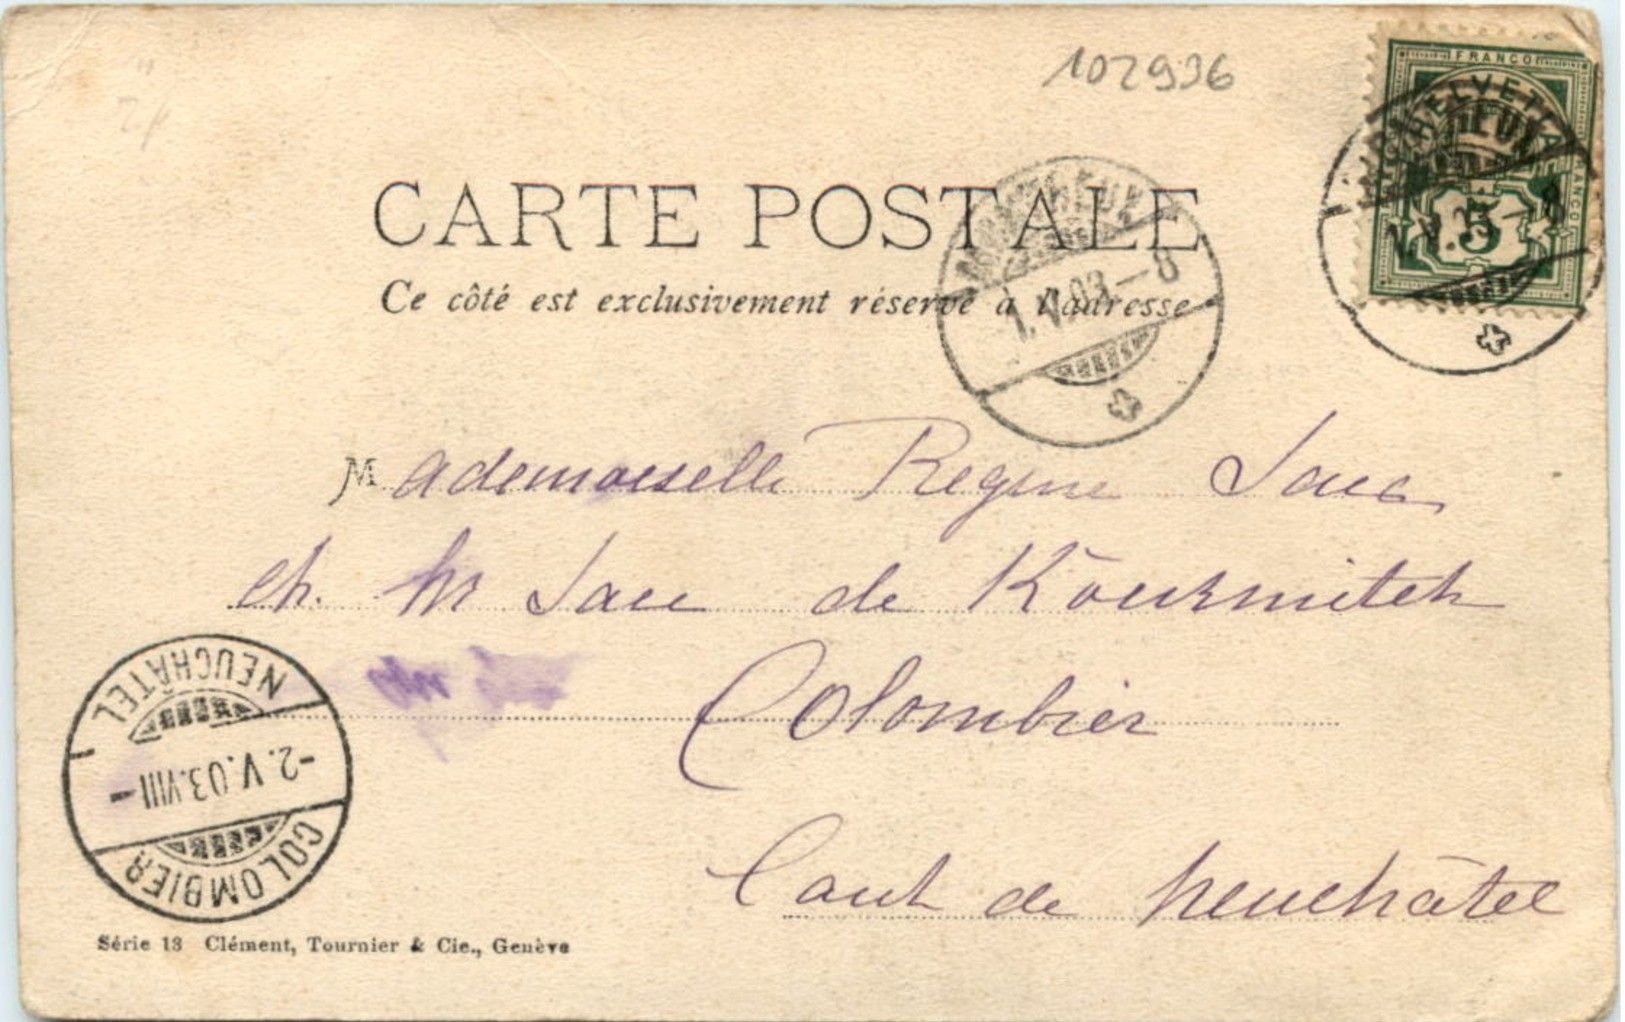 102996
FRANCO
HELVETIA
FRANCO
5
CARTE POSTALE
MONTREUX
Ce côté est exclusivement réservé à l'adresse
1.V.03-8
1.V.03-8
Mademoiselle Regine
ch. Mr de
NEUCHÂTEL
Colombier
-2.V.03.VIII-
COLOMBIER
Cant de Neuchâtel
Série 13 Clément, Tournier & Cie., Genève